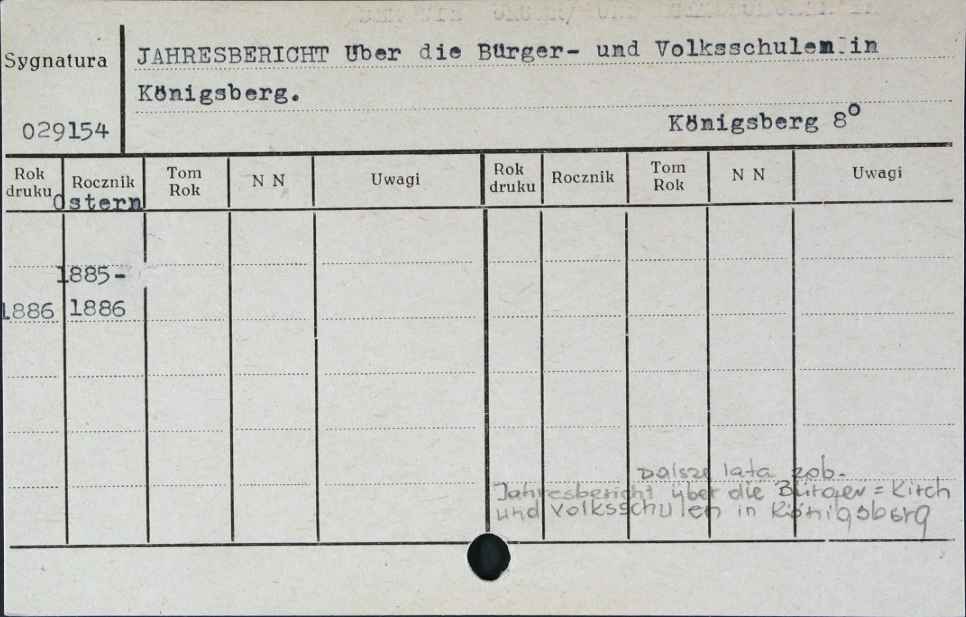 Sygnatura
029154
JAHRESBERICHT Über die Bürger- und Volksschulen in
Königsberg.
Königsberg 8°
Rok druku
Rocznik
Tom Rok
N N
Uwagi
Rok druku
Rocznik
Tom Rok
N N
Uwagi
Ostern
1885-
1886 1886
Dalsze lata zob.
Jahresbericht über die Bürger = Kirch
und Volksschulen in Königsberg